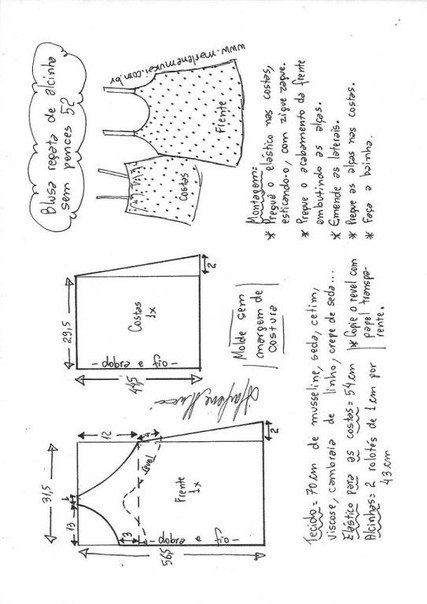 Blusa regata de alcinha
sem pences 52
www.marlenemukai.com.br
Frente
Costas
Montagem:
* Pregue o elástico nas costas,
esticando-o, com zigue zague.
* Pregue o acabamento da frente
embutindo as alças.
* Emende as laterais.
* Pregue as alças nas costas.
* Faça a bainha.
29,5
2
Costas
1x
dobra e fio
44,5
Molde sem
margem de
costura
31,5
12
1
13
3
2
Frente
1x
dobra e fio
56,5
Tecido = 70 cm de musseline, seda, cetim,
viscose, cambraia de linho, crepe de seda...
Elástico para as costas = 54 cm
Alcinhas = 2 rolotés de 1 cm por
43 cm
* Copie o revel com
papel transpa-
rente.